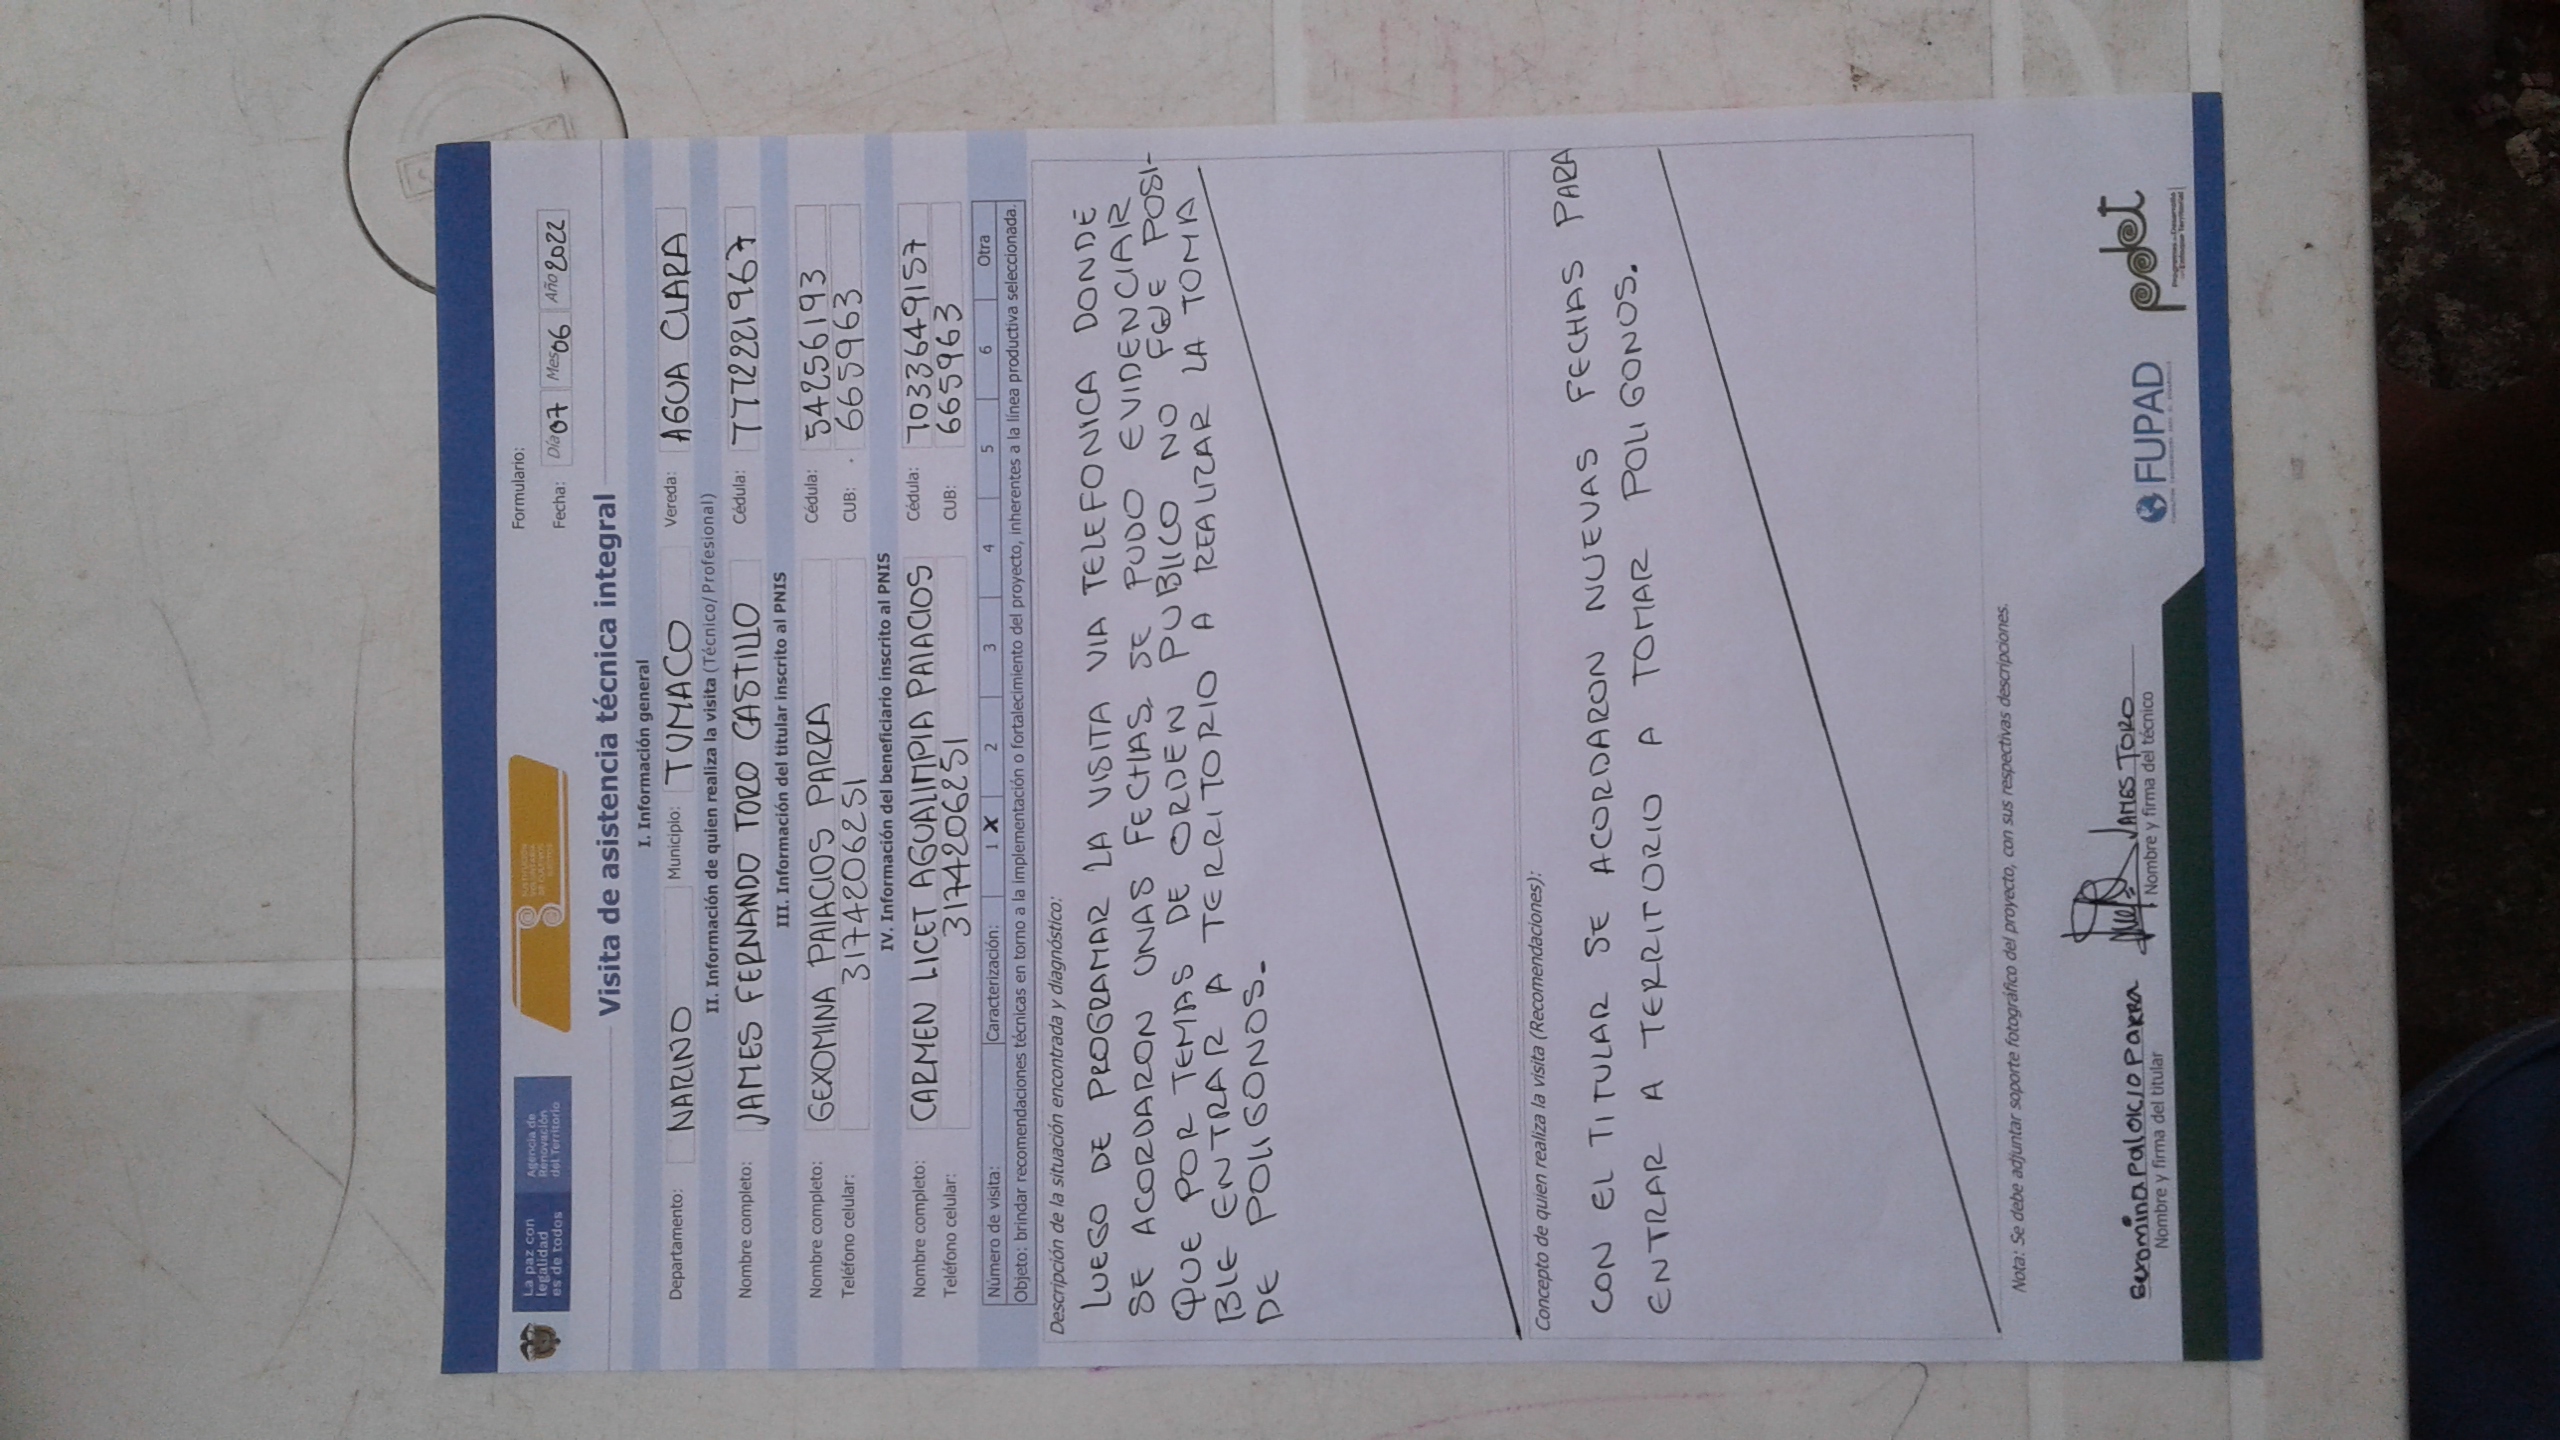 La paz con
legalidad
es de todos
Agencia de
Renovación
del Territorio
SUSTITUCIÓN
VOLUNTARIA
DE CULTIVOS
ILÍCITOS
Formulario:
Fecha: Día 07 Mes 06 Año 2022
Visita de asistencia técnica integral
I. Información general
Departamento: NARINO Municipio: TUMACO Vereda: AGUA CLARA
II. Información de quien realiza la visita (Técnico/Profesional)
Nombre completo: JAMES FERNANDO TORO CASTILLO Cédula: 7772221967
III. Información del titular inscrito al PNIS
Nombre completo: GEXOMINA PALACIOS PARRA Cédula: 54256193
Teléfono celular: 3174206251 CUB: 6659963
IV. Información del beneficiario inscrito al PNIS
Nombre completo: CARMEN LICET AGUALIMPIA PALACIOS Cédula: 7033649157
Teléfono celular: 3174206251 CUB: 665963
Número de visita: Caracterización: 1 X 2 3 4 5 6 Otra
Objeto: brindar recomendaciones técnicas en torno a la implementación o fortalecimiento del proyecto, inherentes a la línea productiva seleccionada.
Descripción de la situación encontrada y diagnóstico:
LUEGO DE PROGRAMAR LA VISITA VIA TELEFONICA DONDE
SE ACORDARON UNAS FECHAS, SE PUDO EVIDENCIAR
QUE POR TEMAS DE ORDEN PUBLICO NO FUE POSI-
BLE ENTRAR A TERRITORIO A REALIZAR LA TOMA
DE POLIGONOS.
Concepto de quien realiza la visita (Recomendaciones):
CON EL TITULAR SE ACORDARON NUEVAS FECHAS PARA
ENTRAR A TERRITORIO A TOMAR POLIGONOS.
Nota: Se debe adjuntar soporte fotográfico del proyecto, con sus respectivas descripciones.
PalaciO ParrA
Nombre y firma del titular
JAMES TORO
Nombre y firma del técnico
FUPAD
pdet